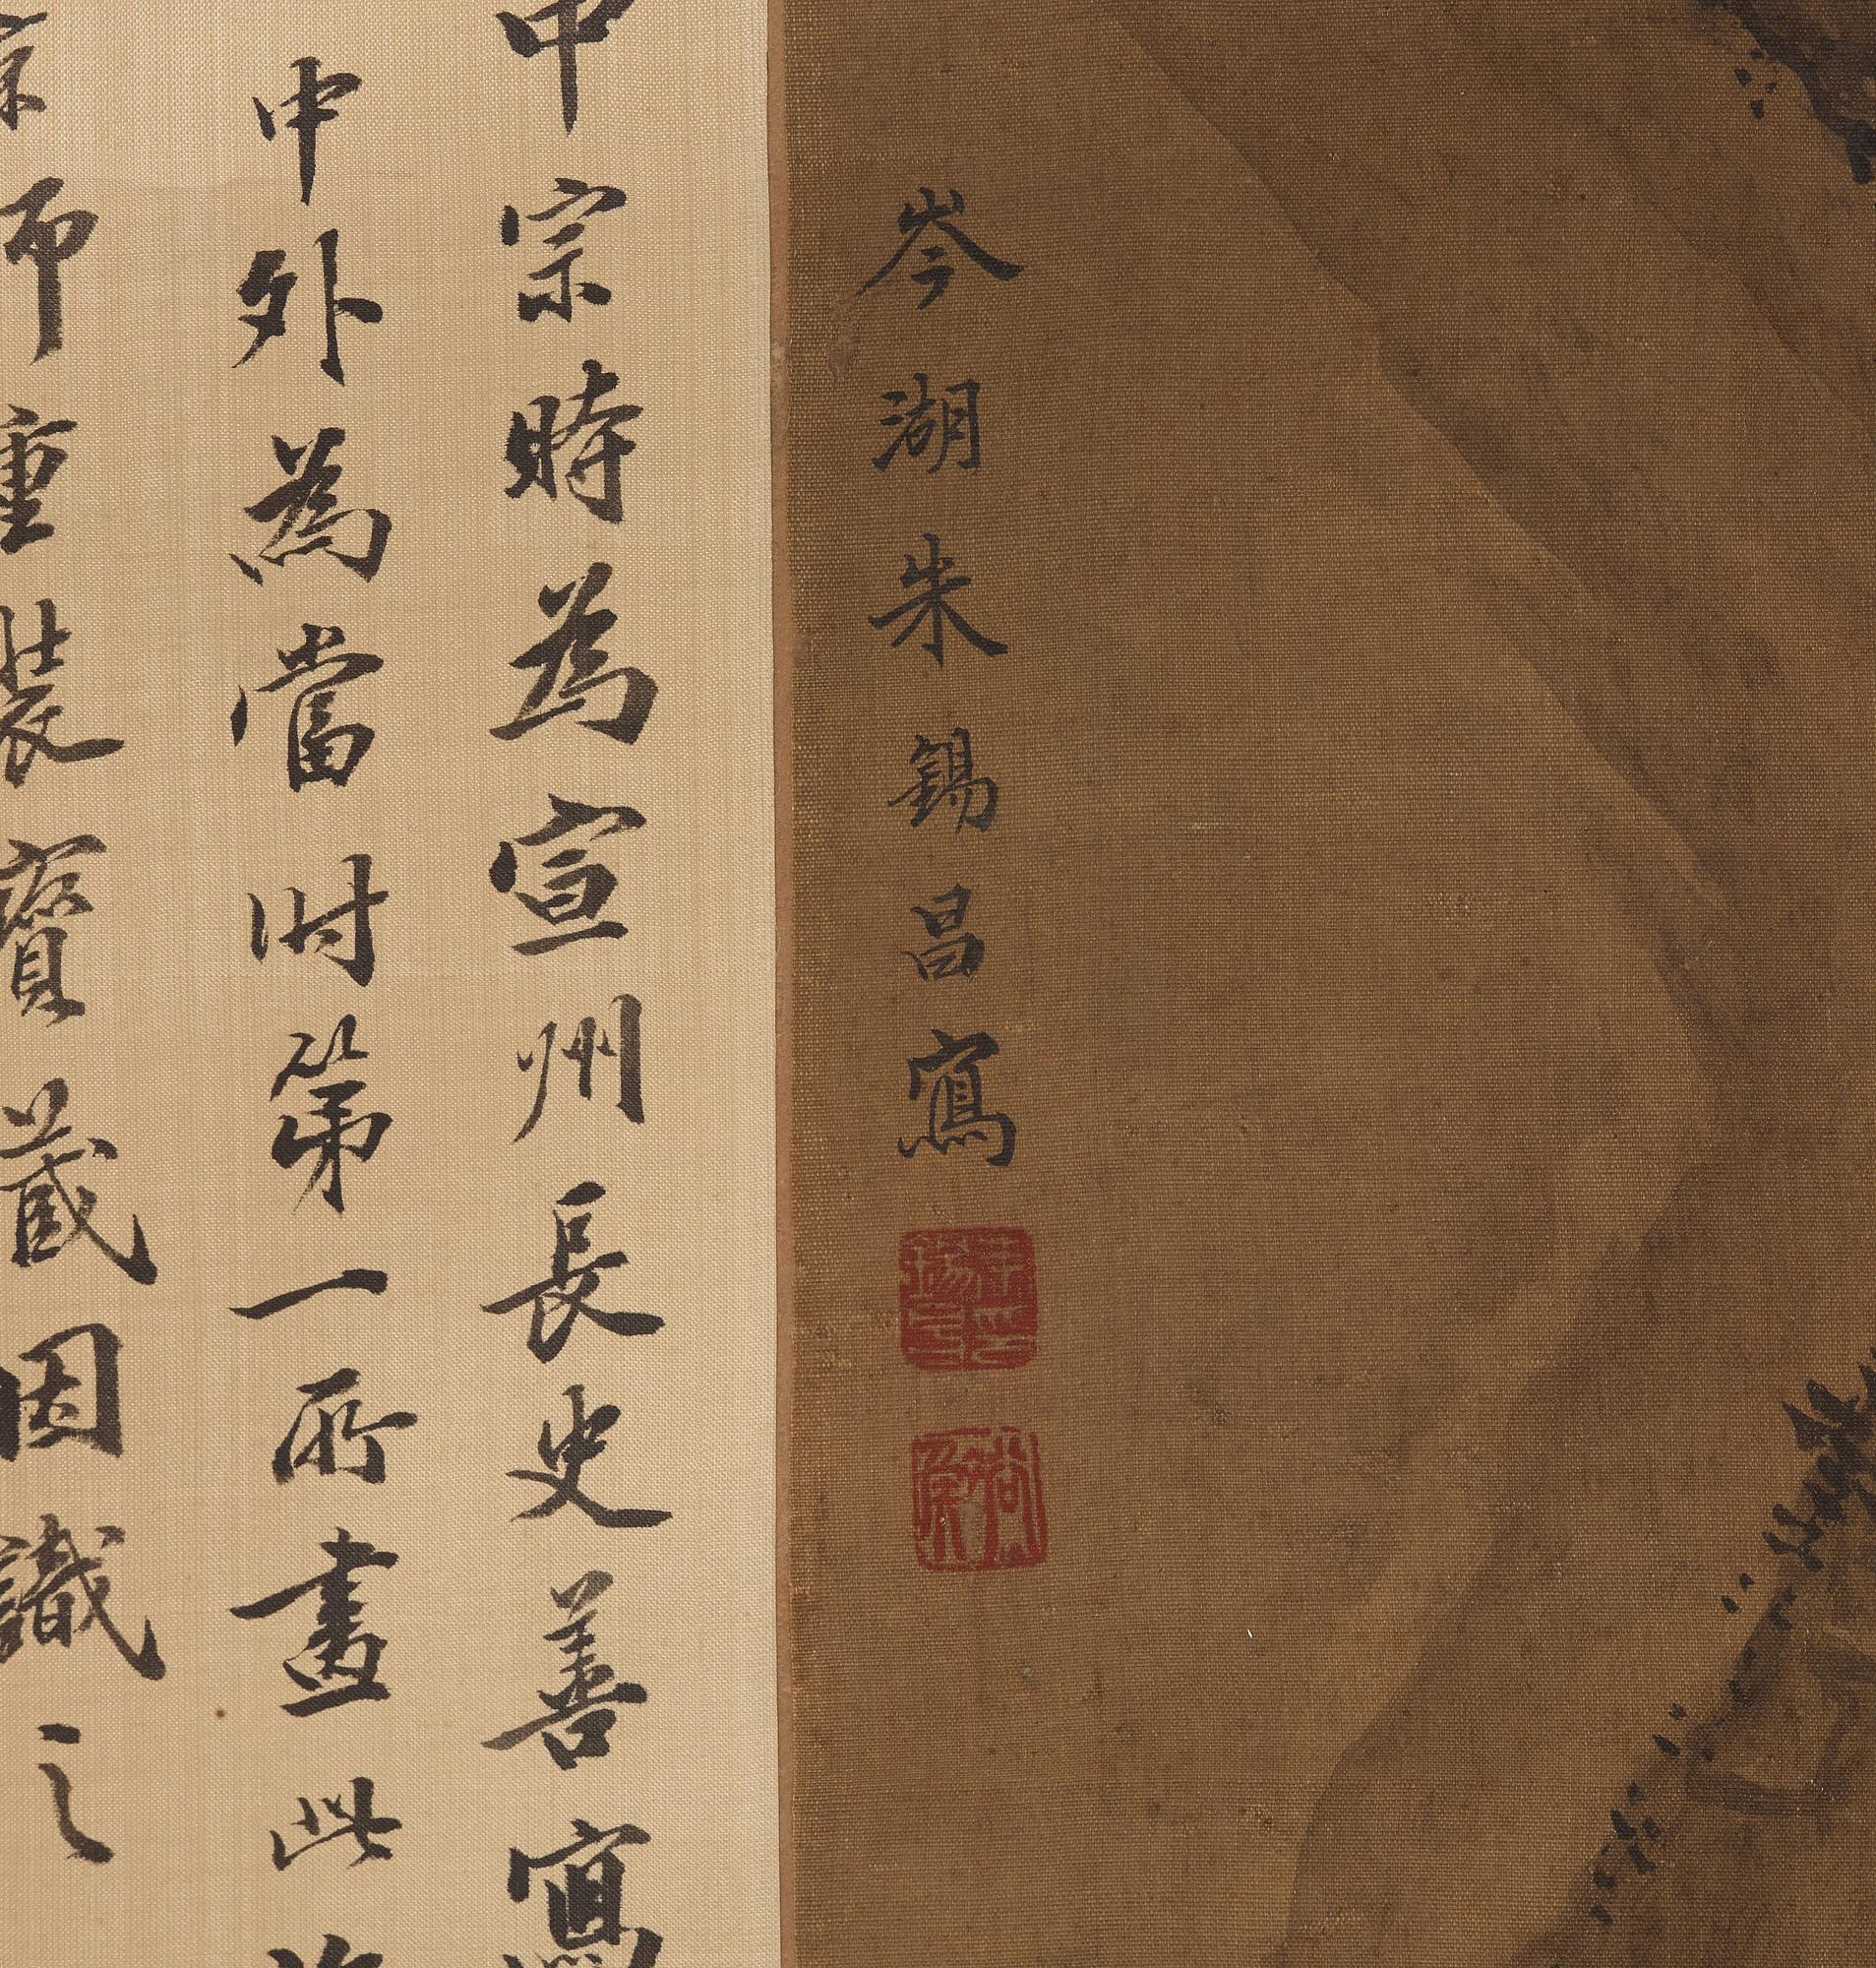 岑湖朱錫昌寫
中宗時為宣州長史善寫
中外為當时第一所畫此
京師重裝寶藏因識之